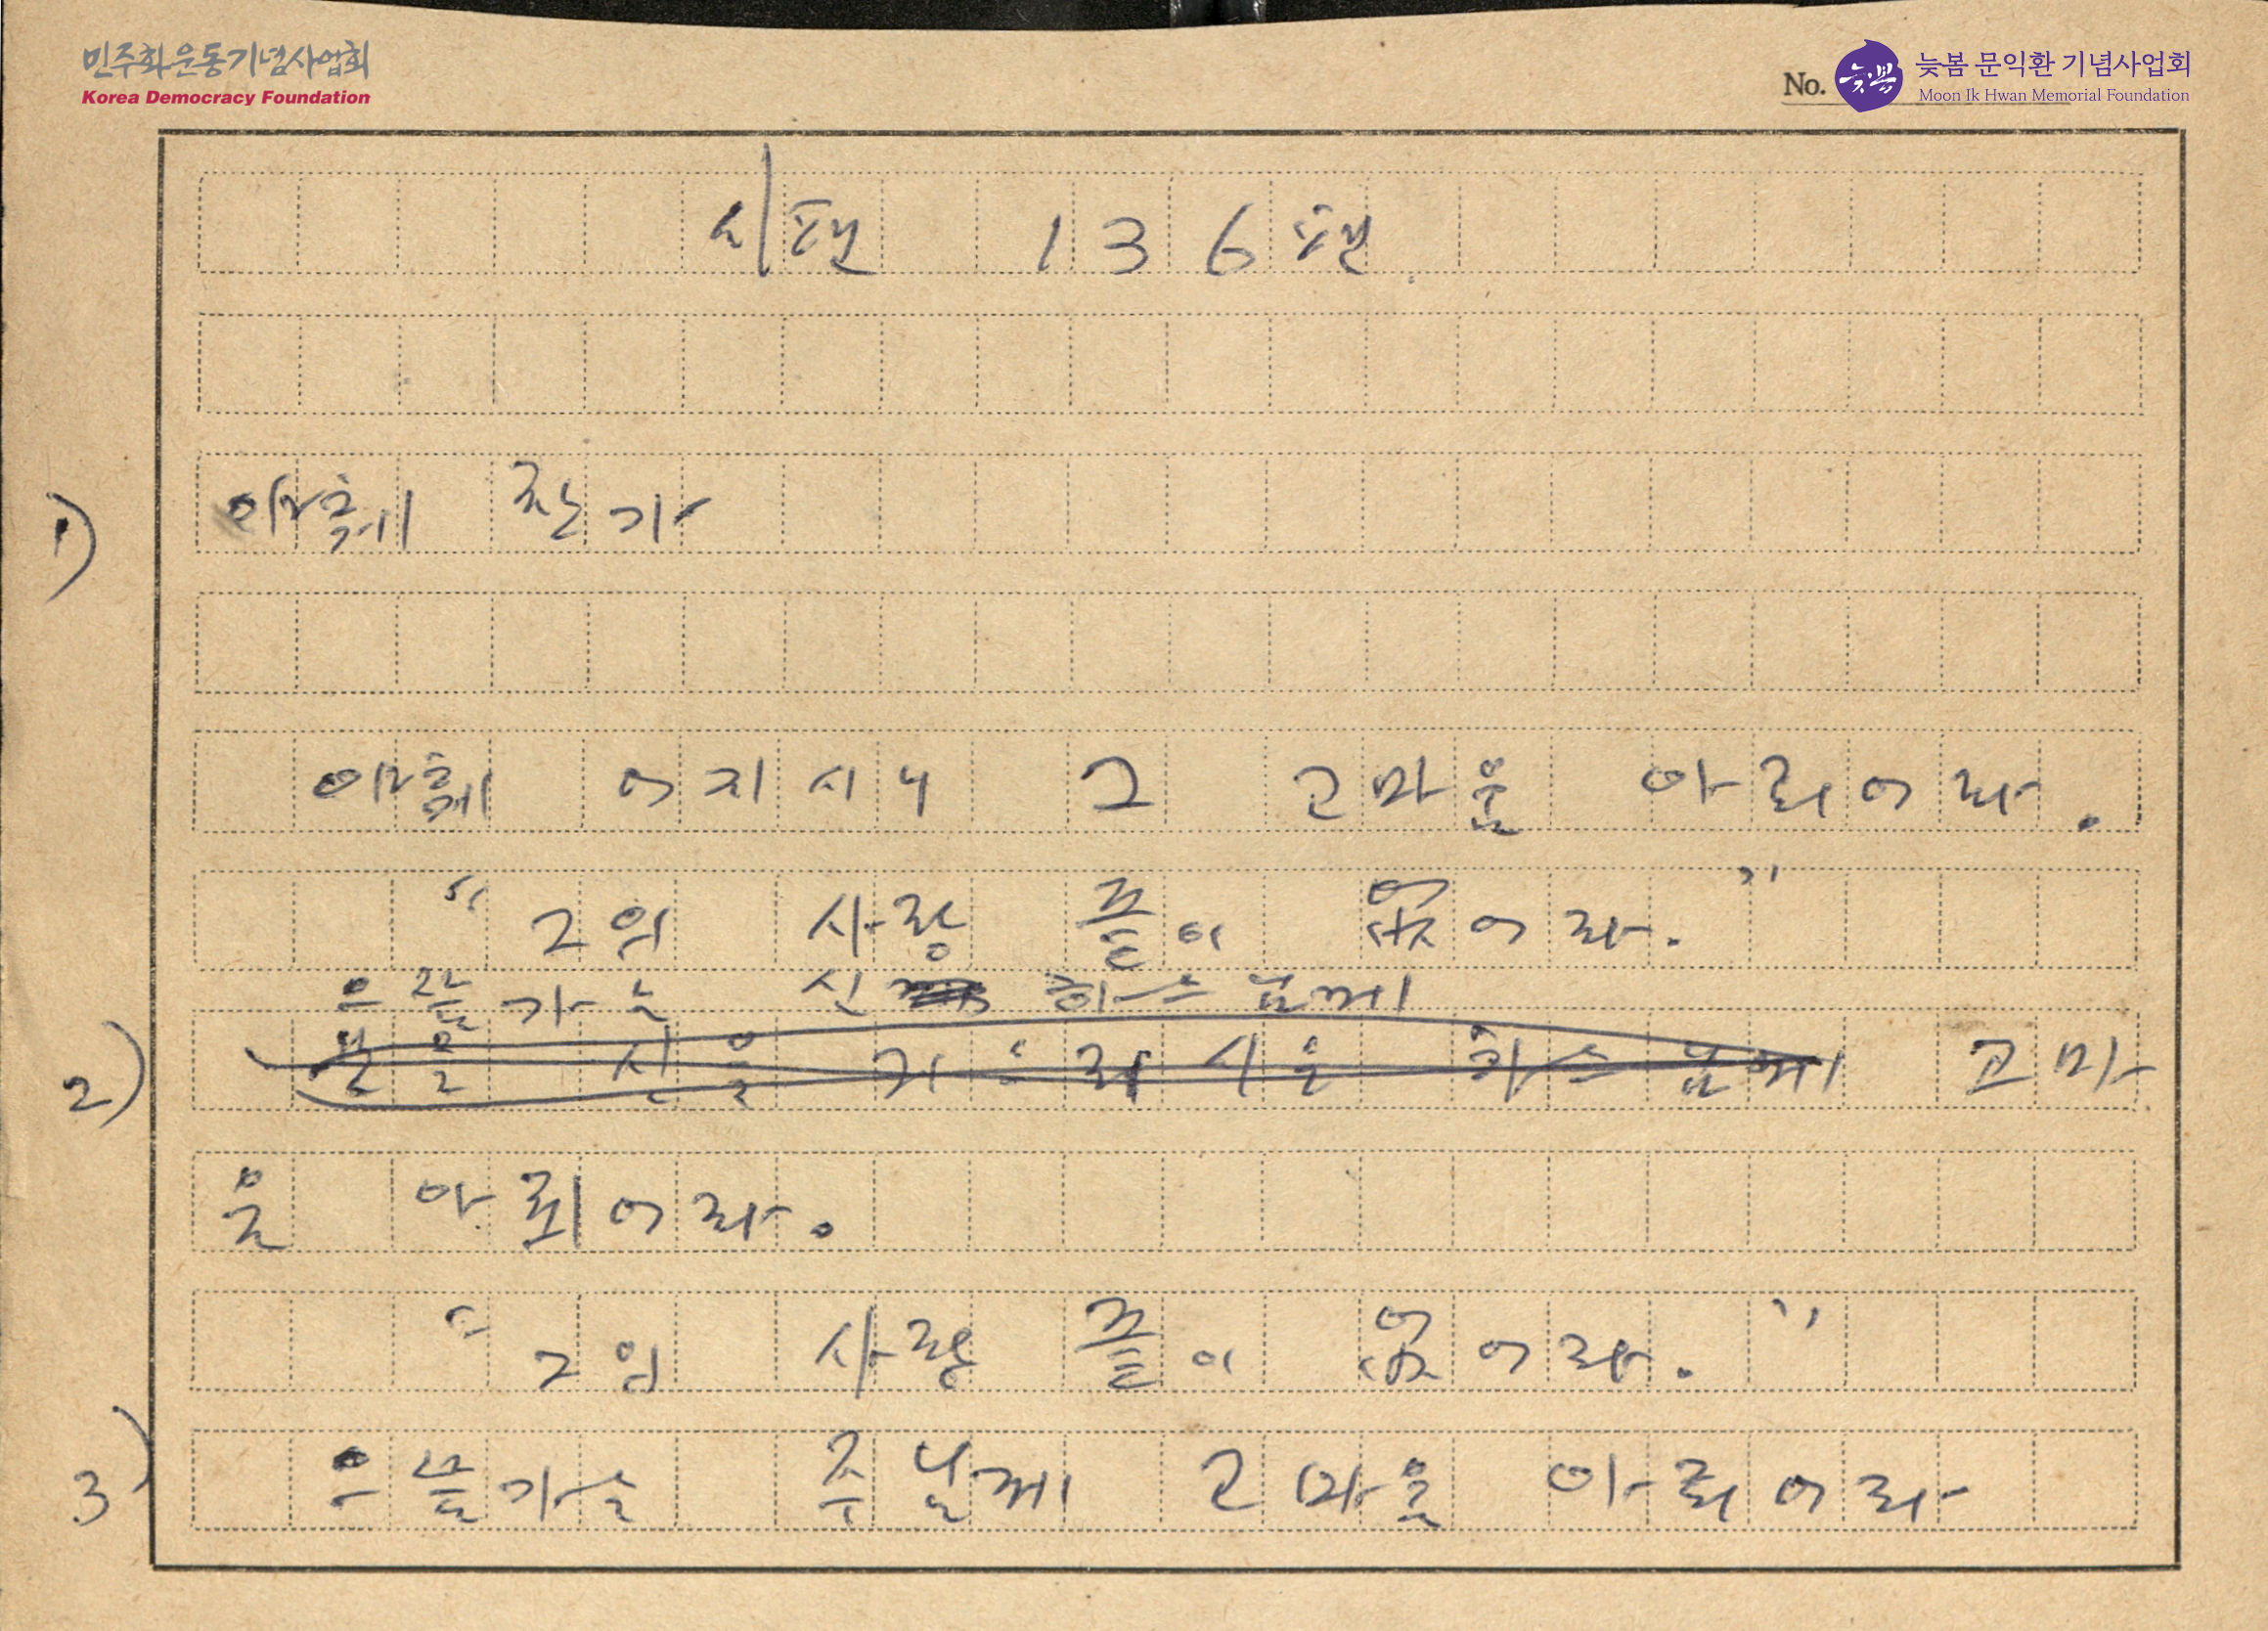 민주화운동기념사업회
Korea Democracy Foundation
No.
늦봄
늦봄 문익환 기념사업회
Moon Ik Hwan Memorial Foundation
시편 136편.
1)
야훼 찬가
야훼 어지시니 그 고마움 아뢰어라.
"그의 사랑 끝이 없어라."
으뜸가는 신 하느님께
2)
시는 하느님께 고마
움 아뢰어라.
"그의 사랑 끝이 없어라."
3)
으뜸가는 주님께 고마움 아뢰어라